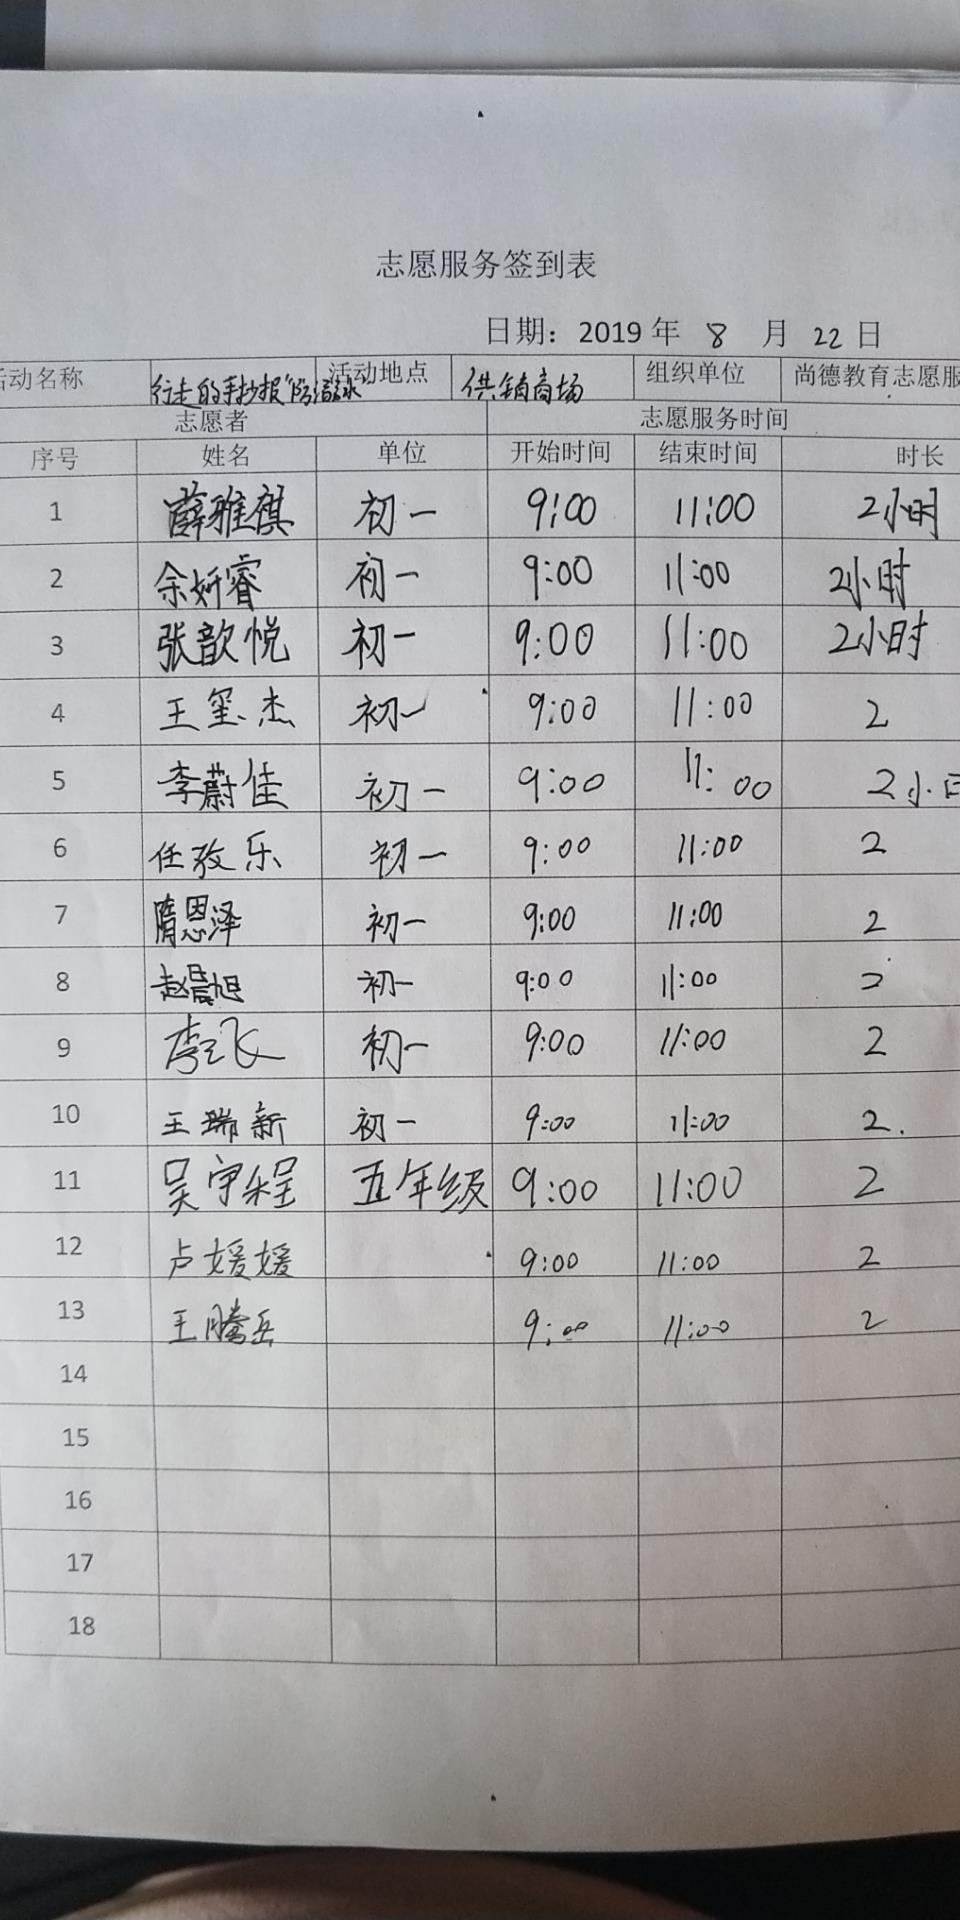 志愿服务签到表
日期：2019 年 8 月 22 日
活动名称 行走的手抄报"防溺水 活动地点 供销商场 组织单位 尚德教育志愿服
志愿者 志愿服务时间
序号 姓名 单位 开始时间 结束时间 时长
1 薛雅祺 初一 9:00 11:00 2小时
2 余妍睿 初一 9:00 11:00 2小时
3 张歆悦 初一 9:00 11:00 2小时
4 王玺杰 初一 9:00 11:00 2
5 李蔚佳 初一 9:00 11:00 2小
6 任孜乐 初一 9:00 11:00 2
7 隋恩泽 初一 9:00 11:00 2
8 赵晨旭 初一 9:00 11:00 2
9 初一 9:00 11:00 2
10 王瑞新 初一 9:00 11:00 2.
11 五年级 9:00 11:00 2
12 卢媛媛 9:00 11:00 2
13 王腾岳 9:00 11:00 2
14
15
16
17
18